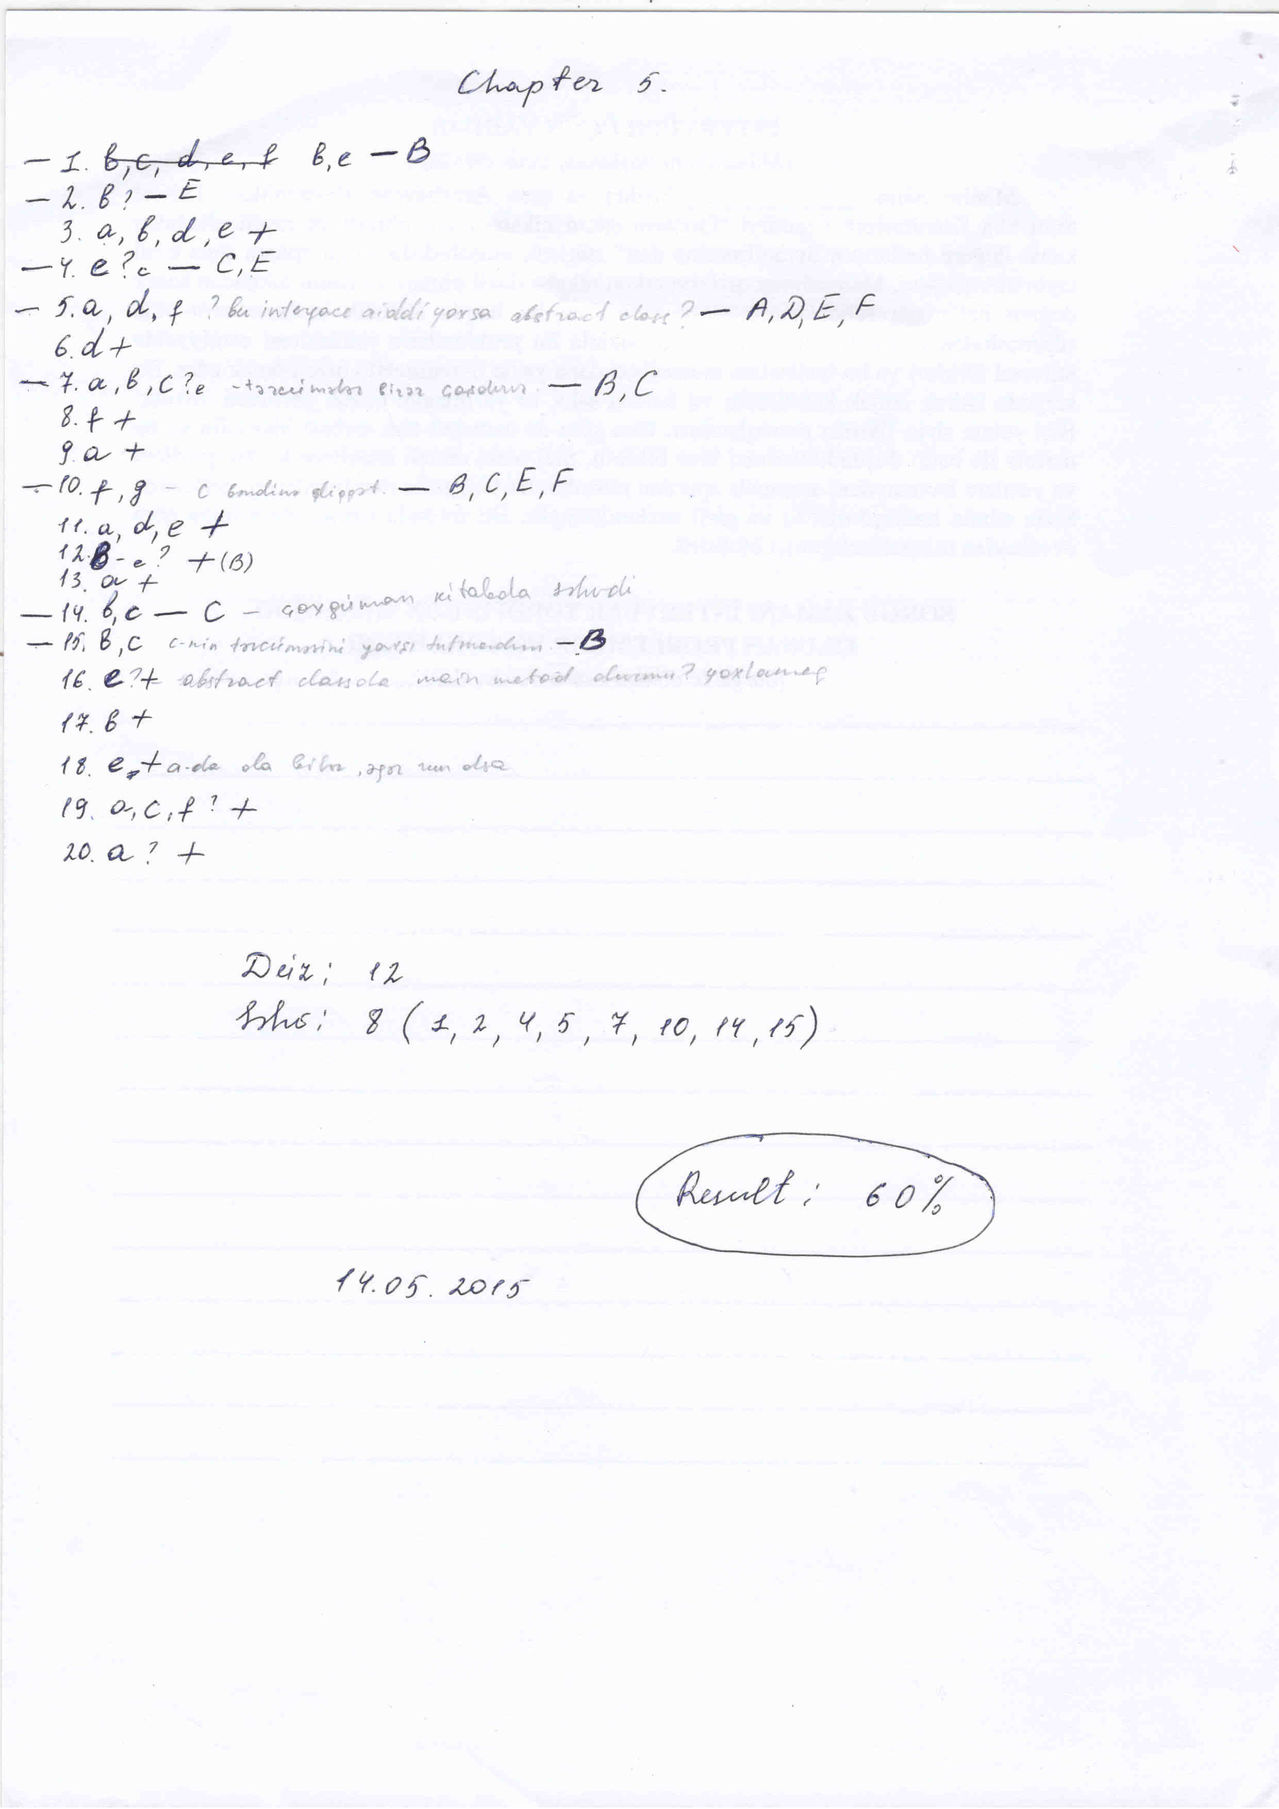 Chapter 5.
— 1. b, c, d, e, f b, e — B
— 2. b? — E
3. a, b, d, e +
— 4. e? c — C, E
— 5. a, d, f ? bu interface aiddi yoxsa abstract class? — A, D, E, F
6. d +
— 7. a, b, c? e - tərcümələr biraz çaşdırır — B, C
8. f +
9. a +
— 10. f, g - c bəndinə — B, C, E, F
11. a, d, e +
12. B - e? + (B)
13. a +
— 14. b, c — C - çoxgüman kitabda səhvdi
— 15. B, C c-nin tərcüməsini yaxşı tutmadım — B
16. e? + abstract classda main metod olurmu? yoxlamaq
17. b +
18. e, + a-da ola bilər, əgər run olsa
19. a, c, f? +
20. a? +
Düz: 12
Səhv: 8 (1, 2, 4, 5, 7, 10, 14, 15)
Result: 60%
14.05.2015